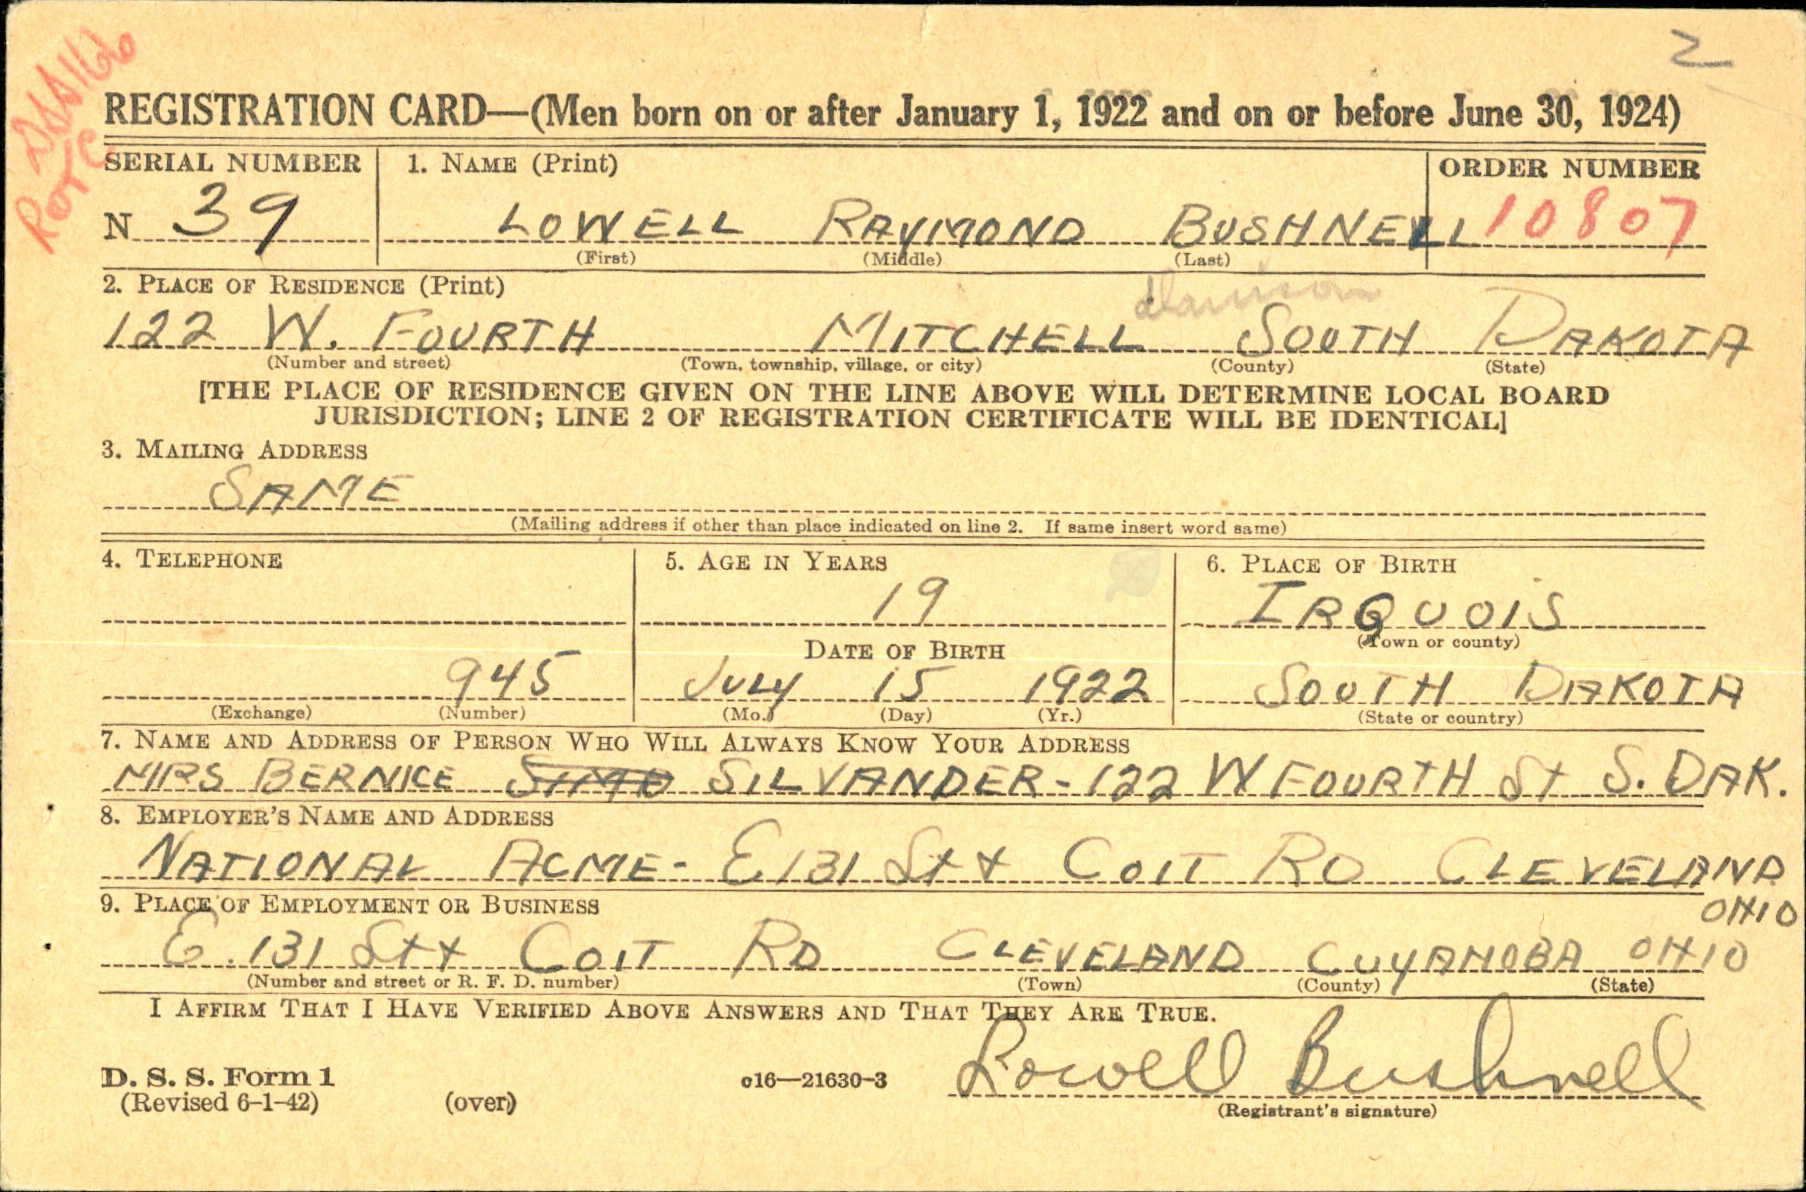 2
DSS 166
ROTC
REGISTRATION CARD—(Men born on or after January 1, 1922 and on or before June 30, 1924)
SERIAL NUMBER 1. NAME (Print) ORDER NUMBER
N 39 LOWELL RAYMOND BUSHNELL 10807
(First) (Middle) (Last)
2. PLACE OF RESIDENCE (Print)
Davison
122 W. FOURTH MITCHELL SOUTH DAKOTA
(Number and street) (Town, township, village, or city) (County) (State)
[THE PLACE OF RESIDENCE GIVEN ON THE LINE ABOVE WILL DETERMINE LOCAL BOARD
JURISDICTION; LINE 2 OF REGISTRATION CERTIFICATE WILL BE IDENTICAL]
3. MAILING ADDRESS
SAME
(Mailing address if other than place indicated on line 2. If same insert word same)
4. TELEPHONE 5. AGE IN YEARS 6. PLACE OF BIRTH
19 IRQUOIS
DATE OF BIRTH (Town or county)
945 JULY 15 1922 SOUTH DAKOTA
(Exchange) (Number) (Mo.) (Day) (Yr.) (State or country)
7. NAME AND ADDRESS OF PERSON WHO WILL ALWAYS KNOW YOUR ADDRESS
MRS BERNICE SILVANDER - 122 W FOURTH St S. DAK.
8. EMPLOYER'S NAME AND ADDRESS
NATIONAL ACME - E 131 St + COIT RD CLEVELAND
OHIO
9. PLACE OF EMPLOYMENT OR BUSINESS
E. 131 St + COIT RD CLEVELAND CUYAHOBA OHIO
(Number and street or R. F. D. number) (Town) (County) (State)
I AFFIRM THAT I HAVE VERIFIED ABOVE ANSWERS AND THAT THEY ARE TRUE.
Lowell Bushnell
D. S. S. Form 1
(Revised 6-1-42) (over) c16—21630-3
(Registrant's signature)